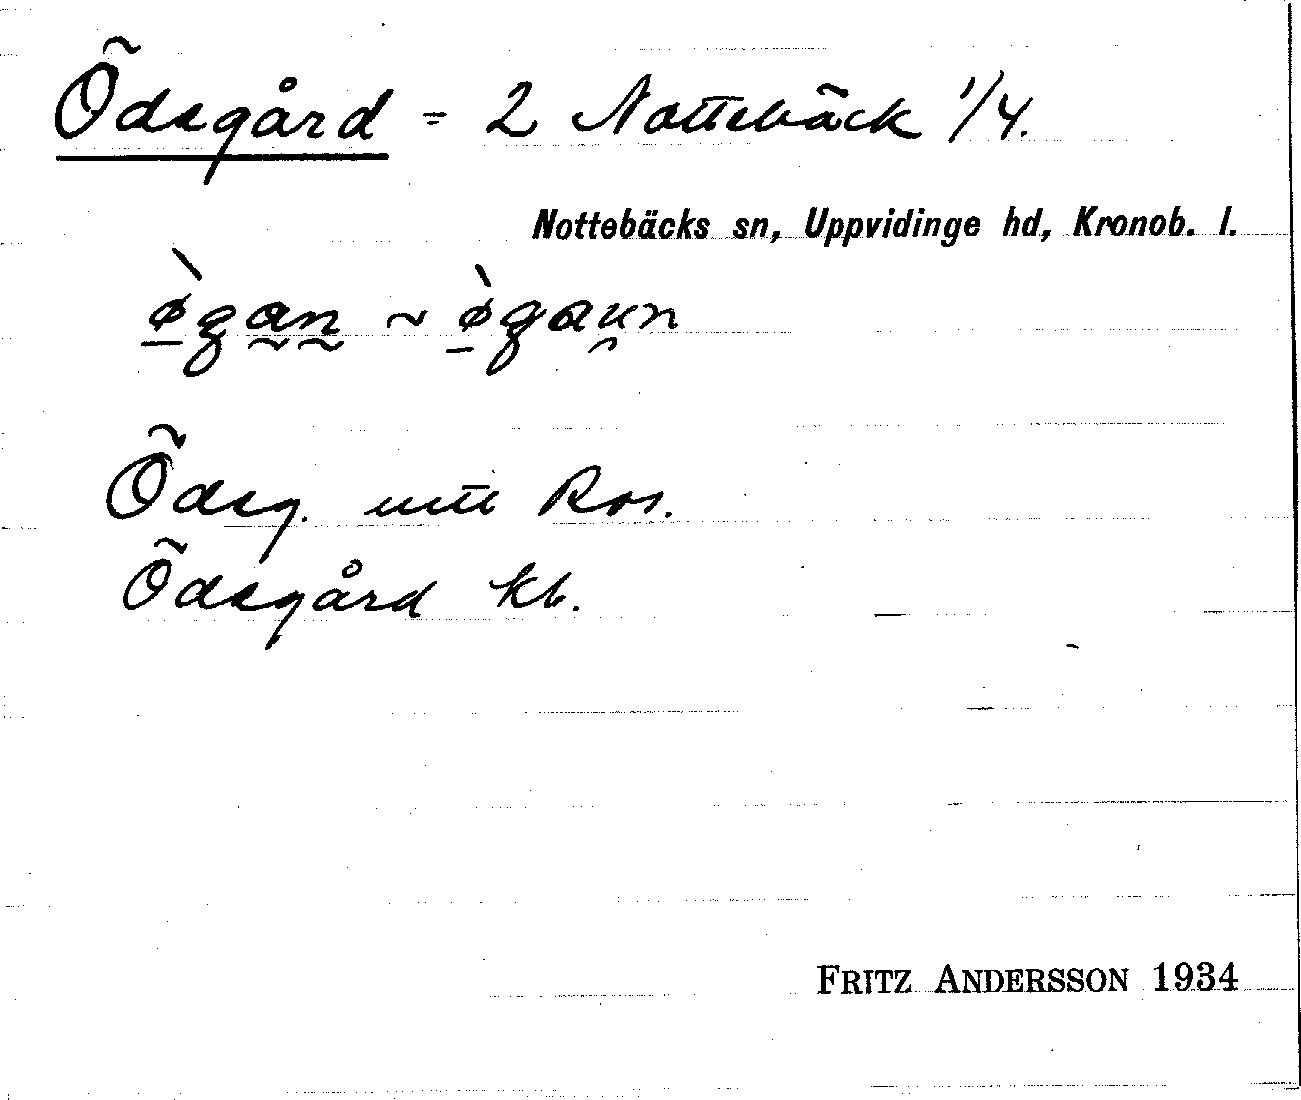 Ödsgård = 2 Nottebäck 1/4.
Nottebäcks sn, Uppvidinge hd, Kronob. l.
ø̀gan ~ ø̀gaun
Ödsg. Ros.
Ödsgård kb.
FRITZ ANDERSSON 1934